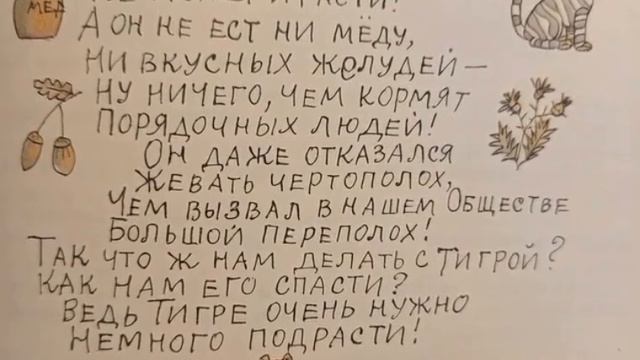 МЕД
А ОН НЕ ЕСТ НИ МЁДУ,
НИ ВКУСНЫХ ЖЕЛУДЕЙ —
НУ НИЧЕГО, ЧЕМ КОРМЯТ
ПОРЯДОЧНЫХ ЛЮДЕЙ!
ОН ДАЖЕ ОТКАЗАЛСЯ
ЖЕВАТЬ ЧЕРТОПОЛОХ,
ЧЕМ ВЫЗВАЛ В НАШЕМ ОБЩЕСТВЕ
БОЛЬШОЙ ПЕРЕПОЛОХ!
ТАК ЧТО Ж НАМ ДЕЛАТЬ С ТИГРОЙ?
КАК НАМ ЕГО СПАСТИ?
ВЕДЬ ТИГРЕ ОЧЕНЬ НУЖНО
НЕМНОГО ПОДРАСТИ!